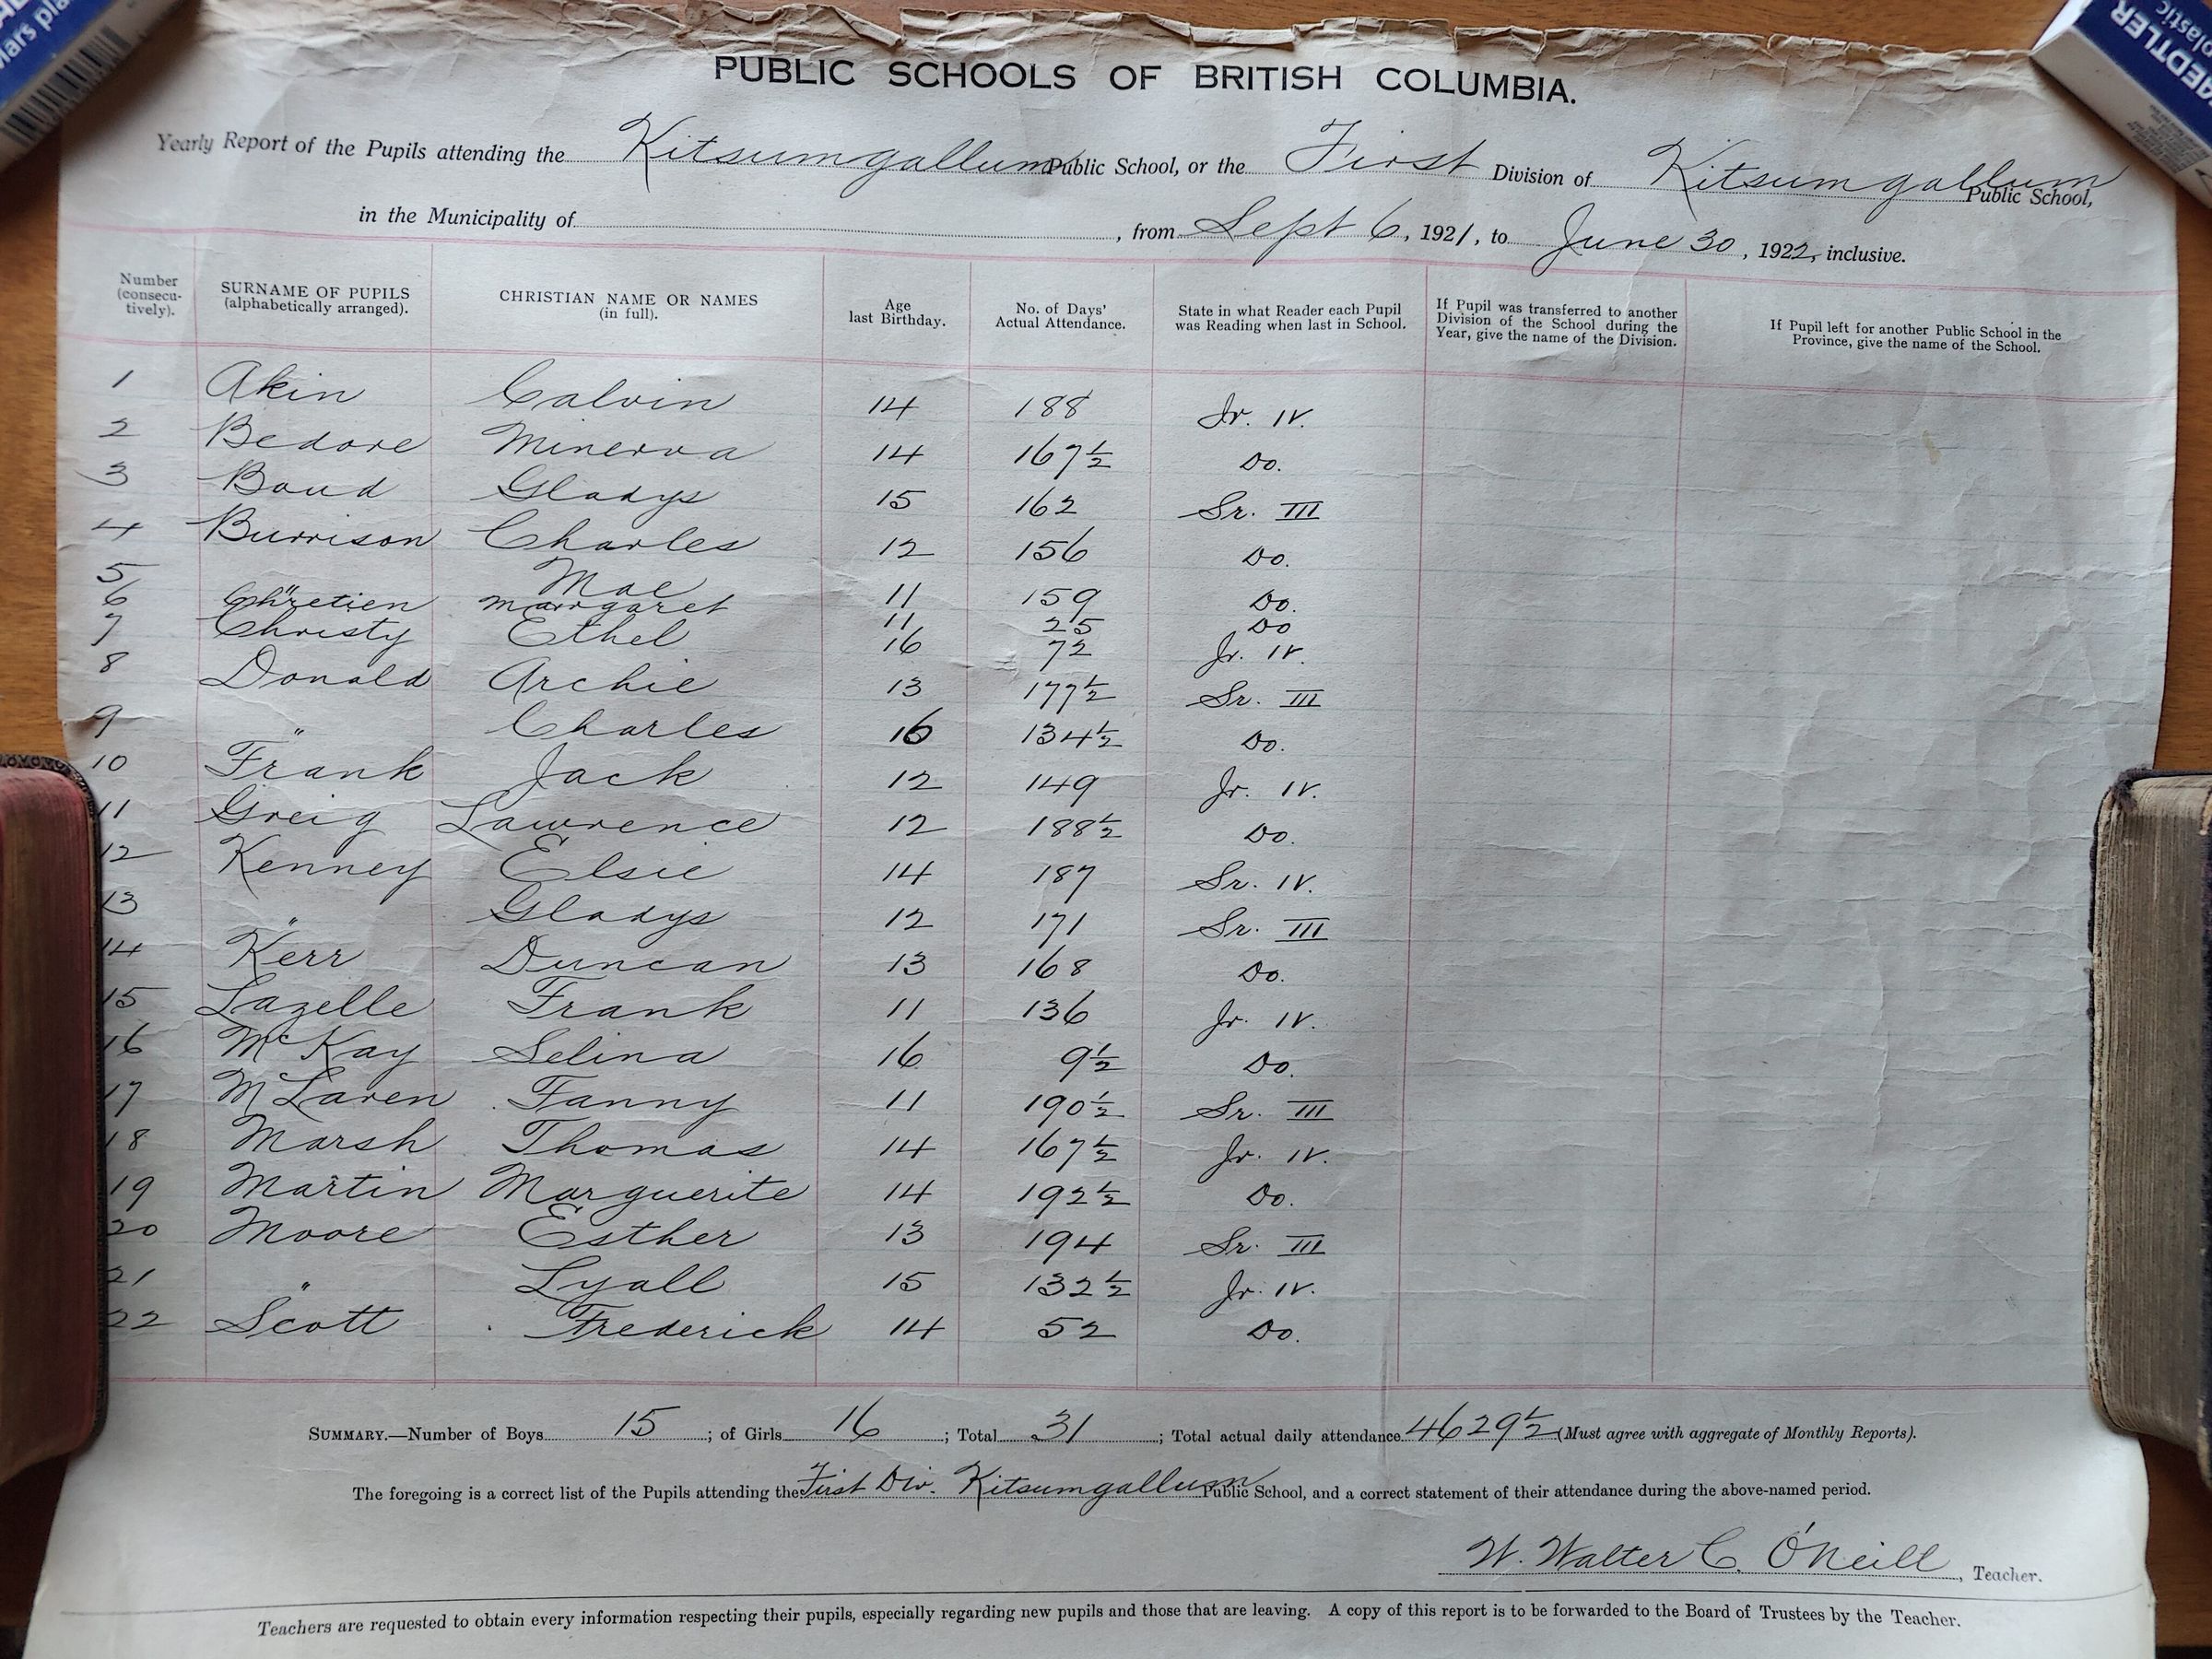 PUBLIC SCHOOLS OF BRITISH COLUMBIA.
Yearly Report of the Pupils attending the Kitsumgallum Public School, or the First Division of Kitsumgallum Public School,
in the Municipality of , from Sept 6, 1921, to June 30, 1922, inclusive.
Number (consecutively). SURNAME OF PUPILS (alphabetically arranged). CHRISTIAN NAME OR NAMES (in full). Age last Birthday. No. of Days' Actual Attendance. State in what Reader each Pupil was Reading when last in School. If Pupil was transferred to another Division of the School during the Year, give the name of the Division. If Pupil left for another Public School in the Province, give the name of the School.
1 Akin Calvin 14 188 Jr. IV.
2 Bedore Minerva 14 167½ Do.
3 Boud Gladys 15 162 Sr. III
4 Burrison Charles 12 156 Do.
5 " Mae 11 159 Do.
6 Chretien Margaret 11 25 Do
7 Christy Ethel 16 72 Jr. IV.
8 Donald Archie 13 177½ Sr. III
9 " Charles 16 134½ Do.
10 Frank Jack 12 149 Jr. IV.
11 Greig Lawrence 12 188½ Do.
12 Kenney Elsie 14 187 Sr. IV.
13 " Gladys 12 171 Sr. III
14 Kerr Duncan 13 168 Do.
15 Lazelle Frank 11 136 Jr. IV.
16 McKay Selina 16 9½ Do.
17 McLaren Fanny 11 190½ Sr. III
18 Marsh Thomas 14 167½ Jr. IV.
19 Martin Marguerite 14 192½ Do.
20 Moore Esther 13 194 Sr. III
21 " Lyall 15 132½ Jr. IV.
22 Scott Frederick 14 52 Do.
SUMMARY.—Number of Boys 15; of Girls 16; Total 31; Total actual daily attendance 4629½ (Must agree with aggregate of Monthly Reports).
The foregoing is a correct list of the Pupils attending the First Div. Kitsumgallum Public School, and a correct statement of their attendance during the above-named period.
W. Walter C. O'Neill, Teacher.
Teachers are requested to obtain every information respecting their pupils, especially regarding new pupils and those that are leaving. A copy of this report is to be forwarded to the Board of Trustees by the Teacher.